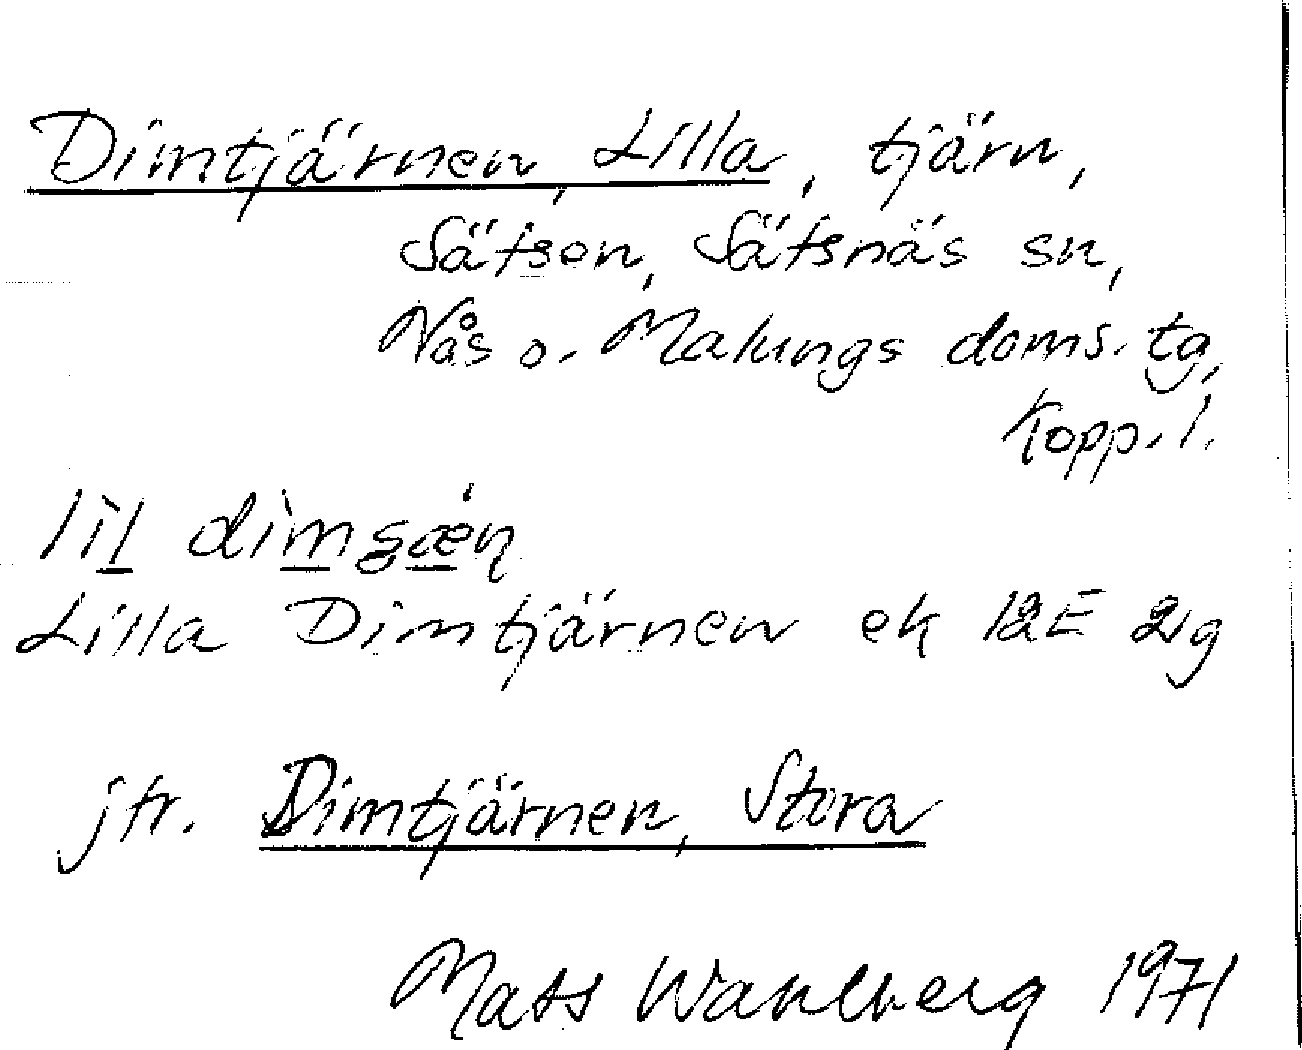 Dimtjärnen, Lilla, tjärn,
Sätsen, Sätsnäs sn,
Nås o. Malungs doms. tg,
Kopp. l.
Lilla Dimtjärnen ek 12E 2g
jfr. Dimtjärnen, Stora
Mats Wahlberg 1971